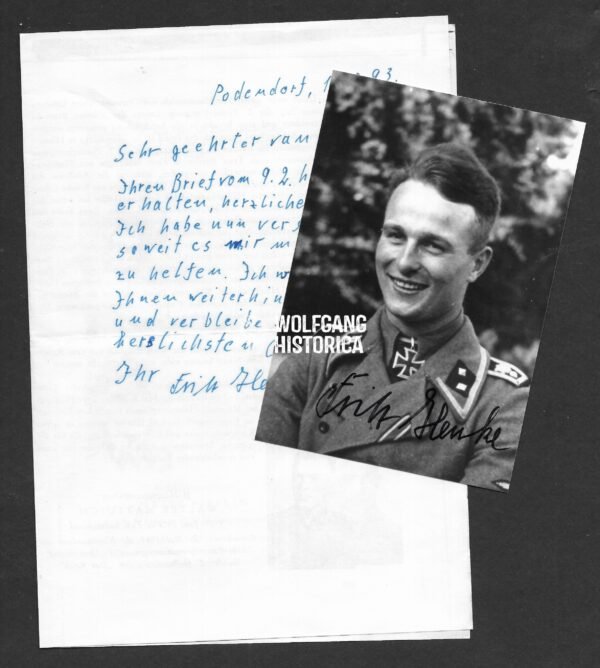 Podendorf, 93.
Sehr geehrter van
Ihren Brief vom 9.2. h
erhalten, herzliche
Ich habe nun vers
soweit es mir m
zu helfen. Ich w
Ihnen weiterhin
und verbleibe
herzlichsten
Ihr Fritz He
WOLFGANG
HISTORICA
Fritz Henke